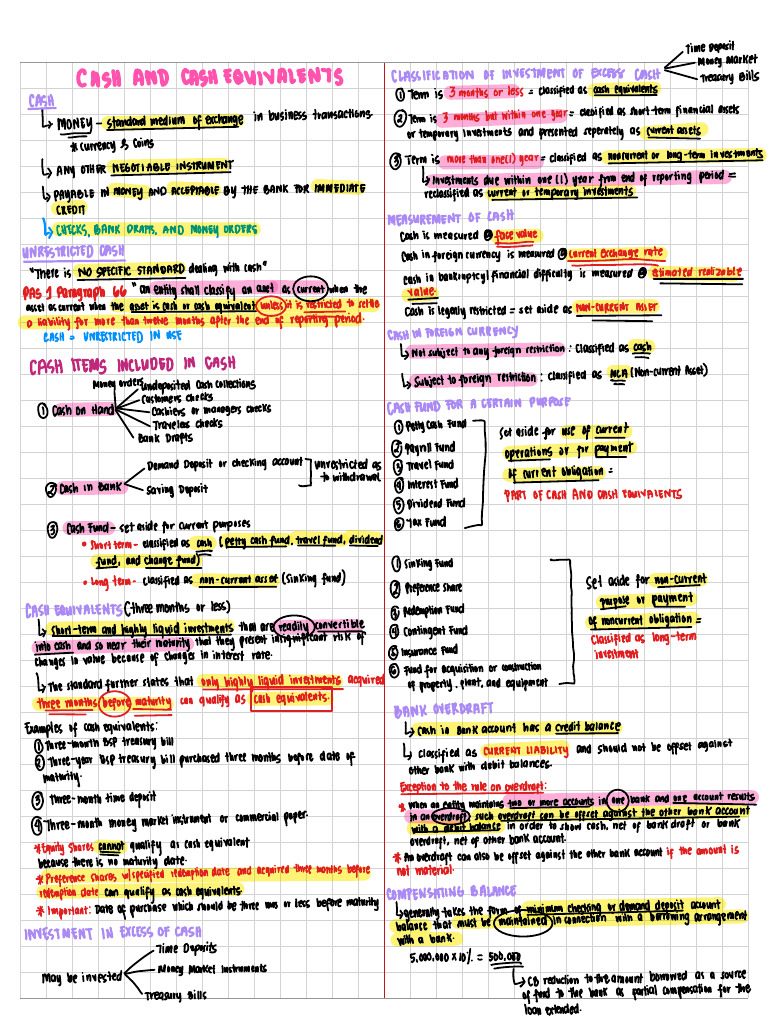 CASH AND CASH EQUIVALENTS
CASH
↳ MONEY - standard medium of exchange in business transactions.
* Currency & Coins
↳ ANY OTHER NEGOTIABLE INSTRUMENT
↳ PAYABLE IN MONEY AND ACCEPTABLE BY THE BANK FOR IMMEDIATE
CREDIT
↳ CHECKS, BANK DRAFTS, AND MONEY ORDERS
UNRESTRICTED CASH
"There is NO SPECIFIC STANDARD dealing with cash"
PAS 1 Paragraph 66 "an entity shall classify an asset as current when the
asset as current when the asset is cash or cash equivalent unless it is restricted to settle
a liability for more than twelve months after the end of reporting period.
CASH = UNRESTRICTED IN USE
CASH ITEMS INCLUDED IN CASH
① Cash on Hand
Money orders
Undeposited Cash collections
Customers checks
Cashiers or managers checks
Travelers checks
Bank Drafts
② Cash in Bank
Demand Deposit or checking account
Saving Deposit
unrestricted as
to withdrawal
③ Cash Fund - set aside for current purposes
• Short term - classified as cash (petty cash fund, travel fund, dividend
fund, and change fund)
• Long term - classified as non-current asset (sinking fund)
CASH EQUIVALENTS (three months or less)
↳ short-term and highly liquid investments that are readily convertible
into cash and so near their maturity that they present insignificant risk of
changes in value because of changes in interest rate.
↳ The standard further states that only highly liquid investments acquired
three months before maturity can qualify as cash equivalents.
Examples of cash equivalents:
① Three-month BSP treasury bill
② Three-year BSP treasury bill purchased three months before date of
maturity.
③ Three-month time deposit
④ Three-month money market instrument or commercial paper.
*Equity shares cannot qualify as cash equivalent
because there is no maturity date.
*Preference shares w/specified redemption date and acquired three months before
redemption date can qualify as cash equivalents
* Important: Date of purchase which should be three mos or less before maturity
INVESTMENT IN EXCESS OF CASH
May be invested
Time Deposits
Money Market Instruments
Treasury Bills
CLASSIFICATION OF INVESTMENT OF EXCESS CASH
Time Deposit
Money Market
Treasury Bills
① Term is 3 months or less = classified as cash equivalents
② Term is 3 months but within one year = classified as short-term financial assets
or temporary investments and presented seperately as current assets
③ Term is more than one(1) year = classified as noncurrent or long-term investments
↳ Investments due within one (1) year from end of reporting period =
reclassified as current or temporary investments
MEASUREMENT OF CASH
Cash is measured @ face value
Cash in foreign currency is measured @ current exchange rate
cash in bankruptcy/financial difficulty is measured @ stimated realizable
value.
Cash is legally restricted = set aside as NON-CURRENT ASSET
CASH IN FOREIGN CURRENCY
↳ Not subject to any foreign restriction : Classified as cash
↳ Subject to foreign restriction : classified as NCA (Non-current Asset)
CASH FUND FOR A CERTAIN PURPOSE
① Petty Cash Fund
② Payroll Fund
③ Travel Fund
④ Interest Fund
⑤ Dividend Fund
⑥ Tax Fund
Set aside for use of current
operations or for payment
of current obligation =
PART OF CASH AND CASH EQUIVALENTS
① Sinking Fund
② Preference Share
③ Redemption Fund
④ Contingent Fund
⑤ Insurance Fund
⑥ Fund for acquisition or construction
of property, plant, and equipment
Set aside for non-current
purpose or payment
of noncurrent obligation =
Classified as long-term
investment
BANK OVERDRAFT
↳ Cash in Bank account has a credit balance
↳ classified as CURRENT LIABILITY and should not be offset against
other bank with debit balances.
Exception to the rule on overdraft:
* When an entity maintains two or more accounts in one bank and one account results
in an overdraft, such overdraft can be offset against the other bank account
with a debit balance in order to show cash, net of bank draft or bank
overdraft, net of other bank account.
* An overdraft can also be offset against the other bank account if the amount is
not material.
COMPENSATING BALANCE
↳ generally takes the form of minimum checking or demand deposit account
balance that must be maintained in connection with a borrowing arrangement
with a bank.
5,000,000 x 10% = 500,000
↳ CB reduction to the amount borrowed as a source
of fund to the bank as partial compensation for the
loan extended.